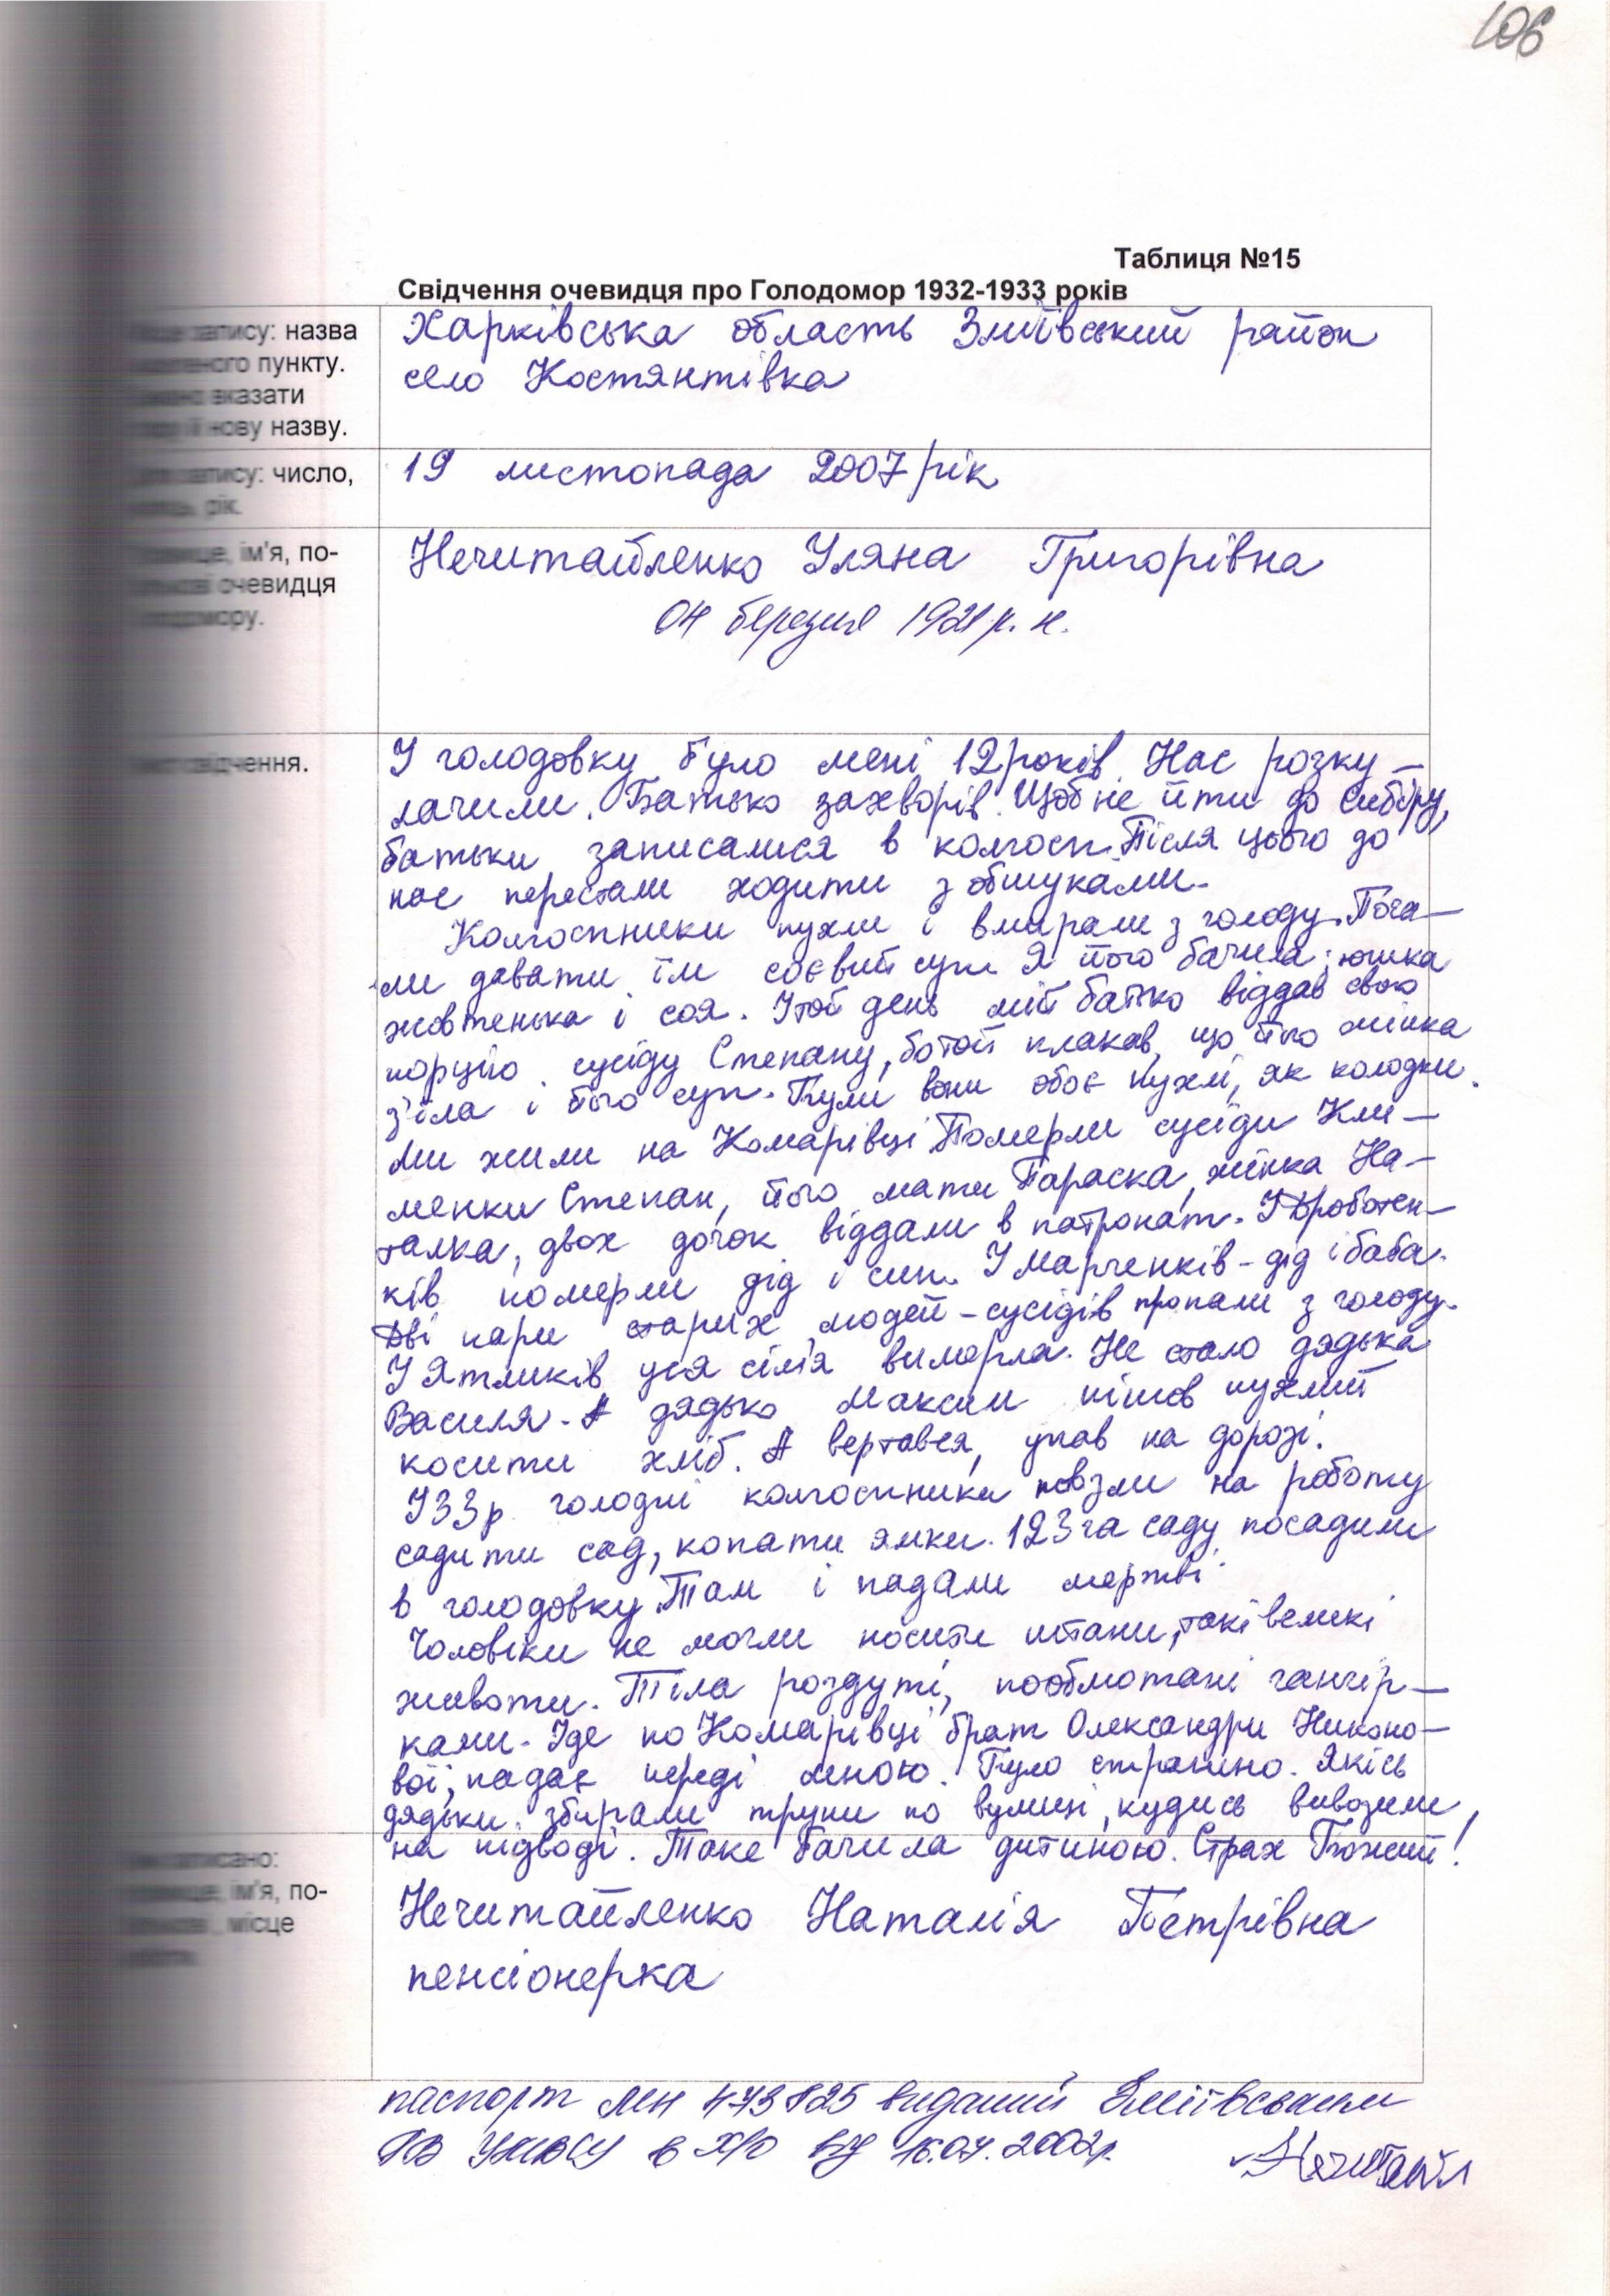 106
Таблиця №15
Свідчення очевидця про Голодомор 1932-1933 років
запису: назва
пункту.
вказати
нову назву.
Харківська область Зміївський район
село Костянтівка
запису: число,
рік.
19 листопада 2007 рік
ім'я, по-
очевидця
Нечитайленко Уляна Григорівна
04 березня 1921 р. н.
свідчення.
У голодовку було мені 12 років. Нас розку–
лачили. Батько захворів. Щоб не йти до Сибіру,
батьки записалися в колгосп. Після цього до
нас перестали ходити з обшуками.
Колгоспники пухли і вмирали з голоду. Поча–
ли давати їм соєвий суп. Я його бачила: юшка
жовтенька і соя. У той день мій батько віддав свою
порцію сусіду Степану, бо той плакав, що його жінка
з'їла і його суп. Були вони обоє пухлі, як колодки.
Ми жили на Комарівці. Померли сусіди Кли–
менки Степан, його мати Параска, жінка На–
талка, двох дочок віддали в патронат. У Дроботен–
ків померли дід і син. У Марченків - дід і баба.
Дві пари старих людей - сусідів пропали з голоду.
У Ятликів уся сім'я вимерла. Не стало дядька
Василя. А дядько Максим пішов пухлий
косити хліб. А вертався, упав на дорозі.
У 33 р. голодні колгоспники повзли на роботу
садити сад, копати ямки. 123 га саду посадили
в голодовку. Там і падали мертві.
Чоловіки не могли носити штани, такі великі
животи. Тіла роздуті, пообмотані ганчір–
ками. Іде по Комарівці брат ОлександриНиконо–
вої, падає переді мною. Було страшно. Якісь
дядьки збирали трупи по вулиці, кудись вивозили
на підводі. Таке бачила дитиною. Страх Божий!
записано:
ім'я, по-
місце
Нечитайленко Наталія Петрівна
пенсіонерка
паспорт МН 473825 виданий Зміївським
РВ УМВСУ в Х/о 16.07.2002р.
Нечитайл